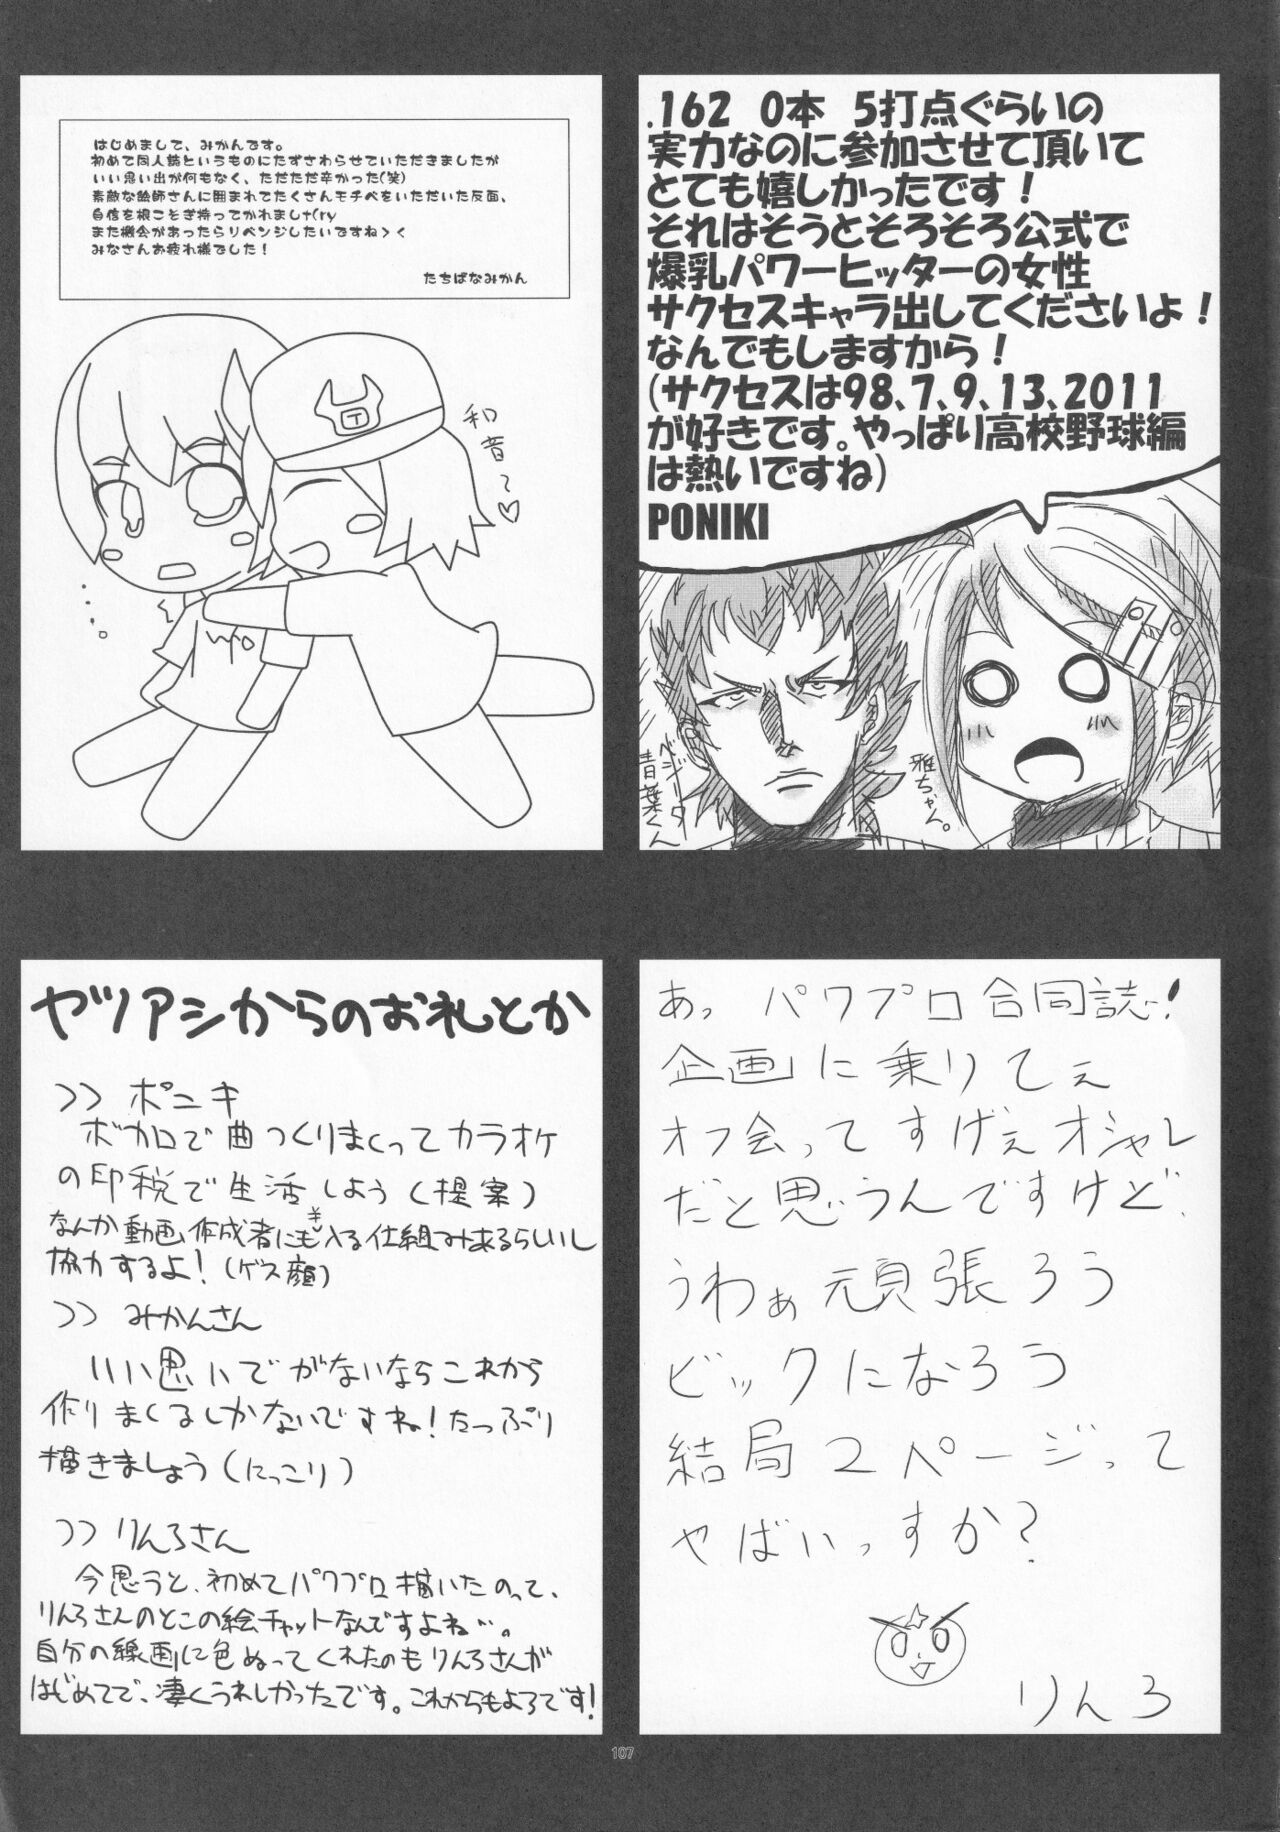 はじめまして、みかんです。
初めて同人誌というものにたずさわらせていただきましたが
いい思い出が何もなく、ただただ辛かった(笑)
素敵な絵師さんに囲まれてたくさんモチベをいただいた反面、
自信を根こそぎ持ってかれましt(ry
また機会があったらリベンジしたいですね＞＜
みなさんお疲れ様でした！
たちばなみかん
和音～♡
.162 0本 5打点ぐらいの
実力なのに参加させて頂いて
とても嬉しかったです！
それはそうとそろそろ公式で
爆乳パワーヒッターの女性
サクセスキャラ出してくださいよ！
なんでもしますから！
(サクセスは98、7、9、13、2011
が好きです。やっぱり高校野球編
は熱いですね)
PONIKI
ベジータ
青葉くん
雅ちゃん。
ヤツアシからのお礼とか
>>ポニキ
ボカロで曲つくりまくってカラオケ
の印税で生活しよう(提案)
なんか動画作成者にも¥入る仕組み来るらしいし
協力するよ！(ゲス顔)
>>みかんさん
いい思いでがないならこれから
作りまくるしかないですね！たっぷり
描きましょう(にっこり)
>>りんろさん
今思うと、初めてパワプロ描いたのって、
りんろさんのとこの絵チャットなんですよね…。
自分の線画に色ぬってくれたのもりんろさんが
はじめてで、凄くうれしかったです。これからもよろです！
あっ パワプロ合同誌！
企画に乗りてぇ
オフ会ってすげぇオシャレ
だと思うんですけど、
うわぁ頑張ろう
ビックになろう
結局2ページって
やばいっすか？
りんろ
107